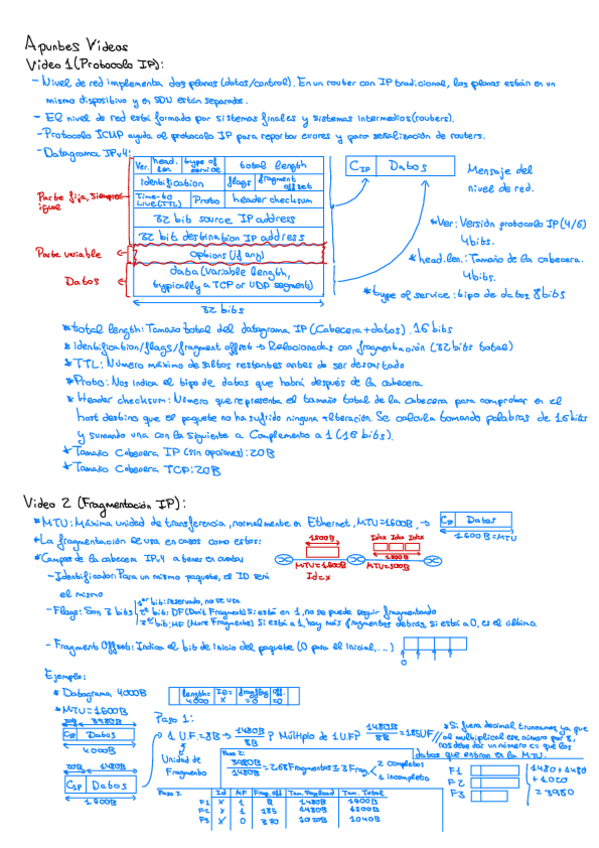 Apuntes Vídeos
Vídeo 1 (Protocolo IP):
- Nivel de red implementa dos planos (datos/control). En un router con IP tradicional, los planos están en un
mismo dispositivo y en SDN están separados.
- El nivel de red está formado por sistemas finales y sistemas intermedios (routers).
- Protocolo ICMP ayuda al protocolo IP para reportar errores y para señalización de routers.
- Datagrama IPv4:
Ver. head. len type of service total length
Identification flags fragment offset
Time to Live (TTL) Proto header checksum
32 bit source IP address
32 bit destination IP address
options (if any)
data (variable length,
typically a TCP or UDP segment)
32 bits
Parte fija, siempre
igual
Parte variable
Datos
CIP Datos
Mensaje del
nivel de red.
*Ver: Versión protocolo IP (4/6)
4 bits.
*head.len.: Tamaño de la cabecera.
4 bits.
*type of service: tipo de datos 8 bits
*total length: Tamaño total del datagrama IP (Cabecera + datos). 16 bits
*Identification/flags/fragment offset → Relacionados con fragmentación (32 bits total)
*TTL: Número máximo de saltos restantes antes de ser descartado
*Proto: Nos indica el tipo de datos que habrá después de la cabecera
*Header checksum: Número que representa el tamaño total de la cabecera para comprobar en el
host destino que el paquete no ha sufrido ninguna alteración. Se calcula tomando palabras de 16 bits
y sumando una con la siguiente a Complemento a 1 (16 bits).
*Tamaño Cabecera IP (sin opciones): 20B
*Tamaño Cabecera TCP: 20B
Vídeo 2 (Fragmentación IP):
*MTU: Máxima unidad de transferencia, normalmente en Ethernet, MTU=1500B, →
CIP Datos
1500B=MTU
*La fragmentación se usa en casos como estos:
1500B
Id=x Id=x Id=x
1500B
MTU=1500B
MTU=500B
Id=x
*Campos de la cabecera IPv4 a tener en cuenta:
- Identificador: Para un mismo paquete, el ID será
el mismo
- Flags: Son 3 bits
1er bit: reservado, no se usa
2º bit: DF (Don't Fragment) Si está en 1, no se puede seguir fragmentando
3er bit: MF (More Fragments) Si está a 1, hay más fragmentos detrás, si está a 0, es el último
- Fragment Offset: Indica el bit de inicio del paquete (0 para el inicial, ...)
Ejemplo:
*Datagrama 4000B
length= 4000 ID= x fragflag =0 off. =0
*MTU=1500B
20B 3980B
CIP Datos
4000B
20B 1480B
CIP Datos
1500B
Paso 1:
1 U.F.=8B → 1480B/8B ? Múltiplo de 1 U.F? 1480B/8B = 185UF
Unidad de
Fragmento
*Si fuera decimal truncamos ya que
al multiplicar ese número por 8,
nos debe dar un número con los
datos que entran en la MTU.
Paso 2:
3980B/1480B = 2.68 Fragmentos ≈ 3 Frag.
2 completos
1 incompleto
F1
F2
F3
1480+1480
+1020
=3980
Paso 3:
Id MF Frag. Off Tam. Payload Tam. Total
F1 x 1 0 1480B 1500B
F2 x 1 185 1480B 1500B
F3 x 0 370 1020B 1040B